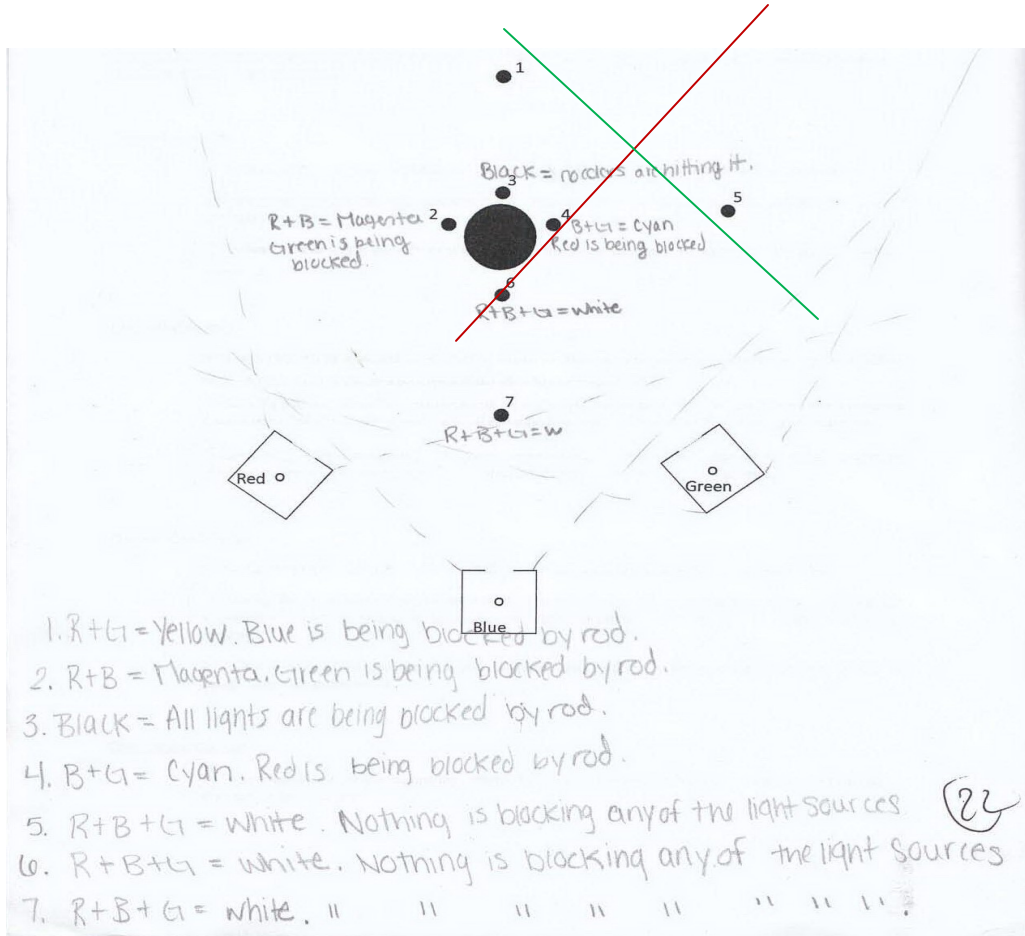 1
Black = no colors are hitting it.
3
2
R+B = Magenta
Green is being
blocked.
4
B+G = Cyan
Red is being blocked
5
6
R+B+G = white
7
R+B+G=W
Red
Green
Blue
1. R+G = Yellow. Blue is being blocked by rod.
2. R+B = Magenta. Green is being blocked by rod.
3. Black = All lights are being blocked by rod.
4. B+G = Cyan. Red is being blocked by rod.
5. R+B+G = white. Nothing is blocking any of the light sources
22
6. R+B+G = white. Nothing is blocking any of the light sources
7. R+B+G = white. " " " " " " " " .